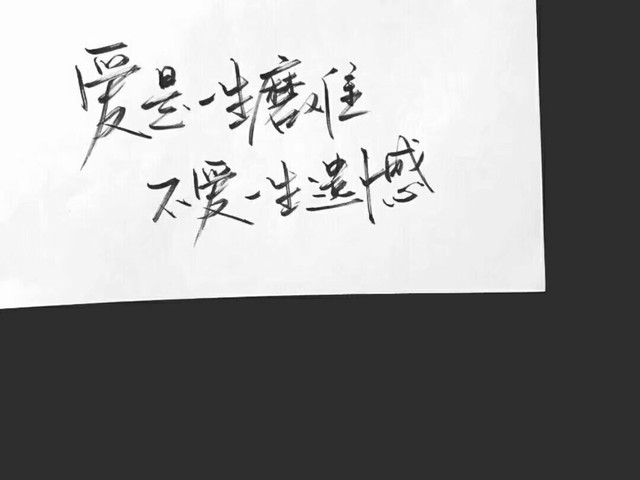 爱是一生磨难
不爱一生遗憾